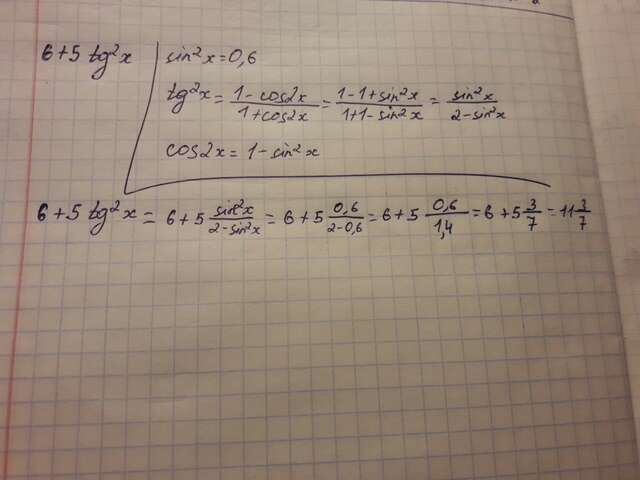 6+5 tg²x
sin²x=0,6
tg²x = \frac{1-cos2x}{1+cos2x} = \frac{1-1+sin²x}{1+1-sin²x} = \frac{sin²x}{2-sin²x}
cos2x = 1-sin²x
6+5 tg²x = 6+5 \frac{sin²x}{2-sin²x} = 6+5 \frac{0,6}{2-0,6} = 6+5 \frac{0,6}{1,4} = 6+5 \frac{3}{7} = 11 \frac{3}{7}